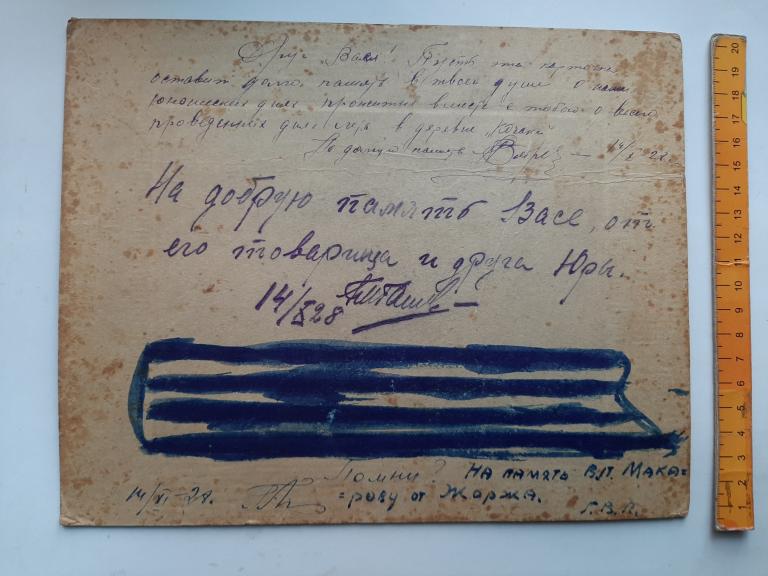 Друг Вася! Пусть эта карточка
оставит долгую память в твоей душе о наших
юношеских днях прожитых вместе с тобой о всех
проведенных днях в деревне „Кочаки"
На долгую память 14/X 28.
На добрую память Васе, от
его товарища и друга Юры.
14/X 28
Помни? На память В.П. Мака=
=рову от Жоржа.
14/XI-28. Г.В.П.
20 19 18 17 16 15 14 13 12 11 10 9 8 7 6 5 4 3 2 1